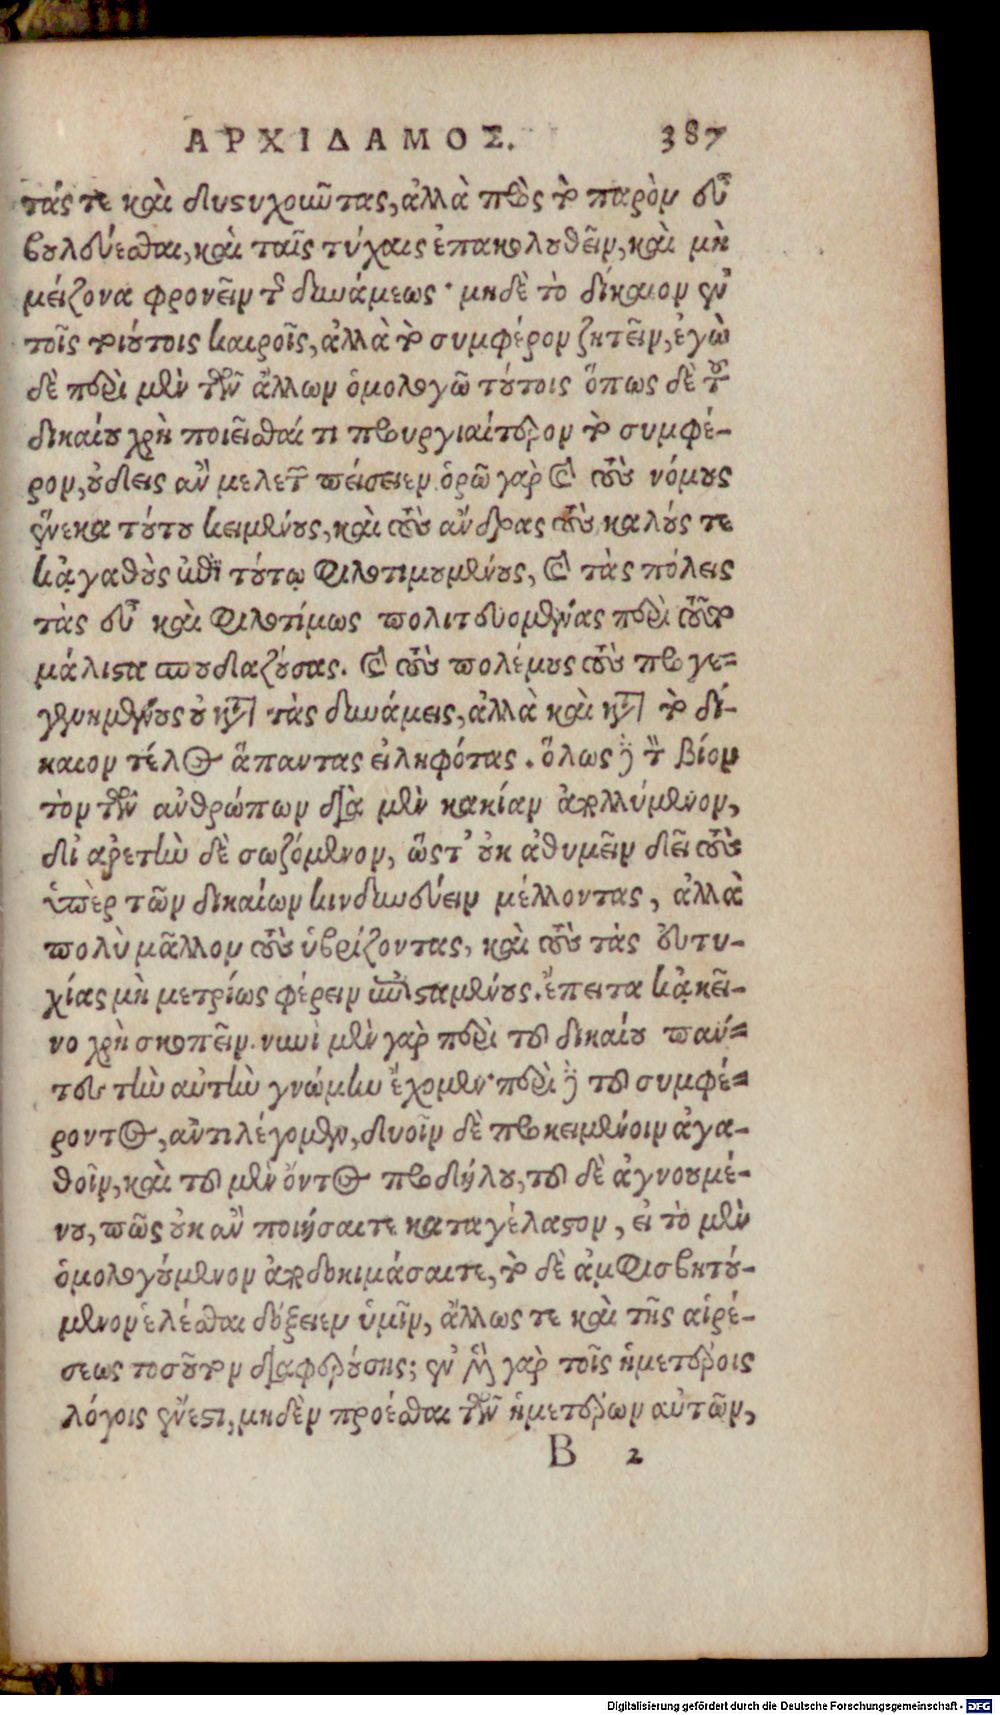 ΑΡΧΙΔΑΜΟΣ. 387
τάς τε καὶ δυςυχοιῶτας, ἀλλὰ πρὸς τὸ παρὸν εὖ
βουλεύεσθαι, καὶ ταῖς τύχαις ἐπακολουθεῖν, καὶ μὴ
μείζονα φρονεῖν τῆς δυνάμεως· μηδὲ τὸ δίκαιον ἐν
τοῖς τοιούτοις καιροῖς, ἀλλὰ τὸ συμφέρον ζητεῖν, ἐγὼ
δὲ περὶ μὲν τῶν ἄλλων ὁμολογῶ τούτοις ὅπως δὲ τοῦ
δικαίου χρὴ ποιεῖσθαί τι προυργιαίτερον τὸ συμφέ-
ρον, οὐδεὶς ἂν με λέγων πείσειεν. ὁρῶ γὰρ καὶ τοὺς νόμους
ἕνεκα τούτου κειμένους, καὶ τοὺς ἄνδρας τοὺς καλούς τε
κᾀγαθοὺς ἐπὶ τούτῳ φιλοτιμουμένους, καὶ τὰς πόλεις
τὰς εὖ καὶ φιλοτίμως πολιτευομένας περὶ τοῦτο
μάλιςα σπουδαζούσας. καὶ τοὺς πολέμους τοὺς προγε-
γενημένους οὐ κατὰ τὰς δυνάμεις, ἀλλὰ καὶ κατὰ τὸ δί-
καιον τέλος ἅπαντας εἰληφότας. ὅλως δὲ τὸν βίον
τὸν τῶν ἀνθρώπων διὰ μὲν κακίαν ἀπολλύμενον,
δι' ἀρετὴν δὲ σωζόμενον, ὥςτ' οὐκ ἀθυμεῖν δεῖ τοὺς
ὑπὲρ τῶν δικαίων κινδυνεύειν μέλλοντας, ἀλλὰ
πολὺ μᾶλλον τοὺς ὑβρίζοντας, καὶ τοὺς τὰς εὐτυ-
χίας μὴ μετρίως φέρειν ἐπιςαμένους. ἔπειτα κᾀκεῖ-
νο χρὴ σκοπεῖν. νυνὶ μὲν γὰρ περὶ τοῦ δικαίου πάν-
τες τὴν αὐτὴν γνώμην ἔχομεν· περὶ δὲ τοῦ συμφέ-
ροντος, ἀντιλέγομεν, δυοῖν δὲ προκειμένοιν ἀγα-
θοῖν, καὶ τοῦ μὲν ὄντος προδήλου, τοῦ δὲ ἀγνοουμέ-
νου, πῶς οὐκ ἂν ποιήσαιτε καταγέλαςον, εἰ τὸ μὲν
ὁμολογούμενον ἀποδοκιμάσαιτε, τὸ δὲ ἀμφισβητού-
μενον ἑλέσθαι δόξειεν ὑμῖν, ἄλλως τε καὶ τῆς αἱρέ-
σεως τοσοῦτον διαφερούσης; ἐν μὲν γὰρ τοῖς ἡμετέροις
λόγοις ἔνεςι, μηδὲν προέσθαι τῶν ἡμετέρων αὐτῶν,
B 2
Digitalisierung gefördert durch die Deutsche Forschungsgemeinschaft - DFG